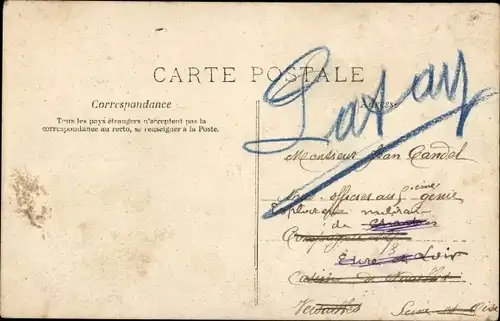 CARTE POSTALE
Correspondance
Tous les pays étrangers n'acceptent pas la
correspondance au recto, se renseigner à la Poste.
Adresse
Monsieur Jean Candel
Sous officier au 5ème génie
militaire
de Chartres
Compagnie
Eure et Loir
Caserne de Noailles
Versailles Seine et Oise